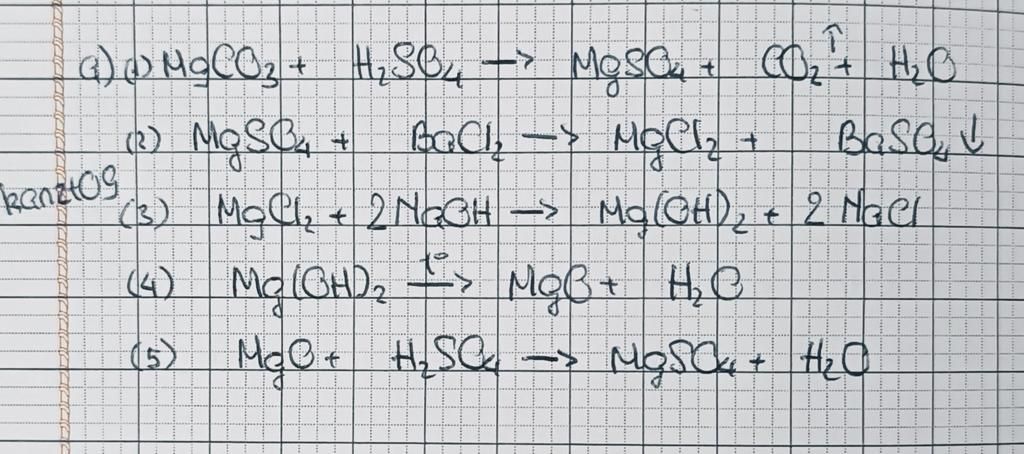 a) (1) MgCO₃ + H₂SO₄ → MgSO₄ + CO₂↑ + H₂O
(2) MgSO₄ + BaCl₂ → MgCl₂ + BaSO₄↓
kanzt09
(3) MgCl₂ + 2 NaOH → Mg(OH)₂ + 2 NaCl
(4) Mg(OH)₂ —t°→ MgO + H₂O
(5) MgO + H₂SO₄ → MgSO₄ + H₂O